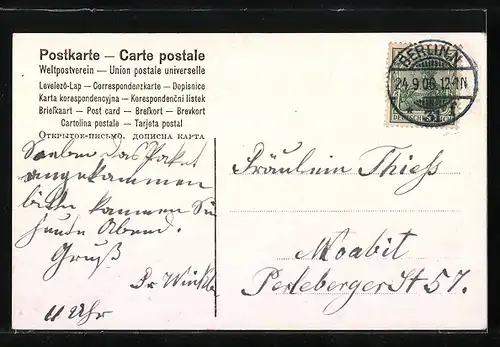 Postkarte — Carte postale
Weltpostverein — Union postale universelle
Levelező-Lap — Correspondenzkarte — Dopisnice
Karta korespondencyjna — Korespondenční lístek
Briefkaart — Post card — Brefkort — Brevkort
Cartolina postale — Tarjeta postal
Открытое-письмо. дописна карта
Soeben das Paket
angekommen
bitte kommen Sie
heute Abend.
Gruß
Winkle
11 Uhr
BERLIN.N.
24.9.06.12-1N
DEUTSCHES
Fräulein Thiess
Moabit
Perleberger St 57.